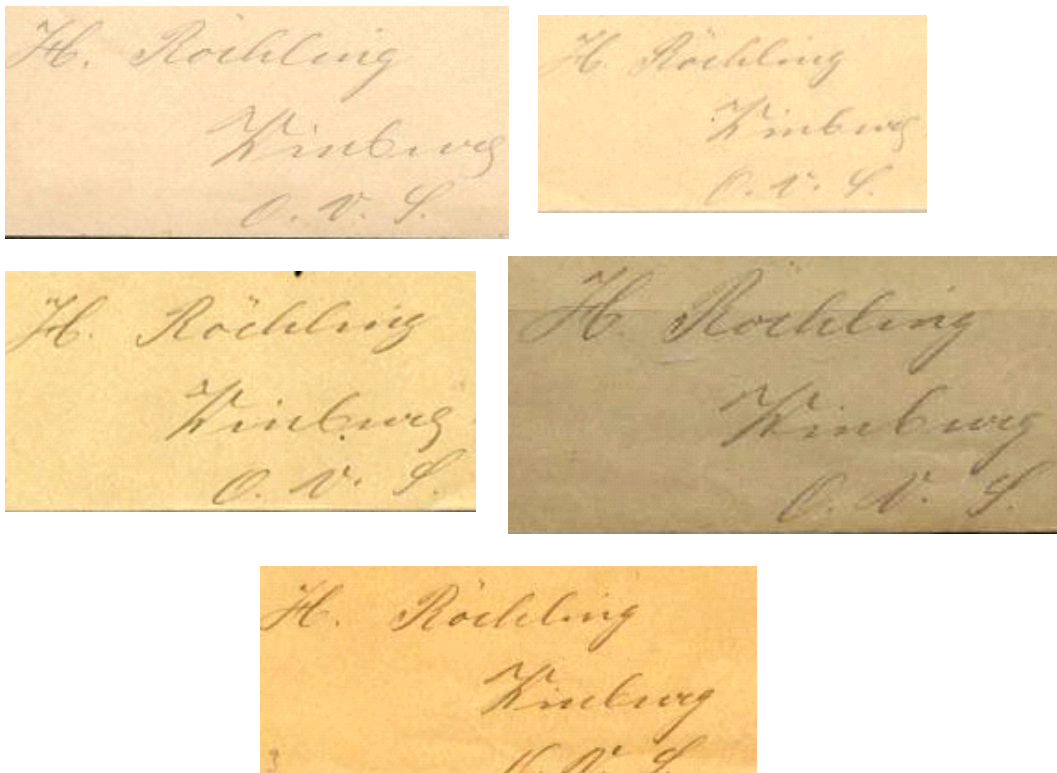 H. Röchling
Winburg
O. V. S.
H. Röchling
Winburg
O. V. S.
H. Röchling
Winburg
O. V. S.
H. Röchling
Winburg
O. V. S.
H. Röchling
Winburg
O. V. S.